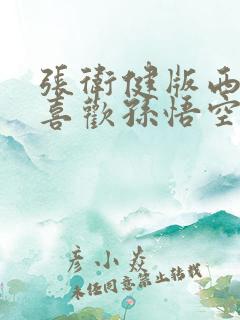 張衛健版西
喜歡孫悟空
彦小焱
未经同意禁止转载